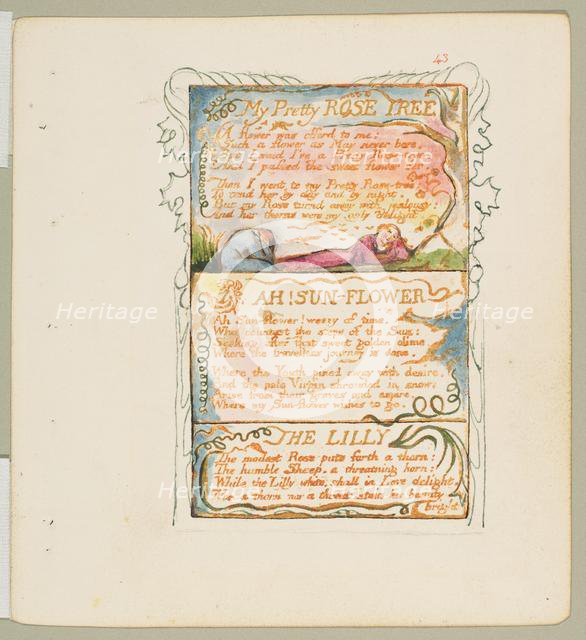 43
My Pretty ROSE TREE
A flower was offerd to me:
Such a flower as May never bore,
But I said I've a Pretty Rose-tree,
And I passed the sweet flower o'er.
Then I went to my Pretty Rose-tree:
To tend her by day and by night.
But my Rose turnd away with jealousy:
And her thorns were my only delight.
AH! SUN-FLOWER
Ah Sun-flower! weary of time,
Who countest the steps of the Sun:
Seeking after that sweet golden clime
Where the travellers journey is done.
Where the Youth pined away with desire,
And the pale Virgin shrouded in snow:
Arise from their graves and aspire,
Where my Sun-flower wishes to go.
THE LILLY
The modest Rose puts forth a thorn:
The humble Sheep, a threatning horn:
While the Lilly white, shall in Love delight,
Nor a thorn nor a threat stain her beauty
bright
Heritage
Heritage
Heritage
Heritage
Heritage
Heritage